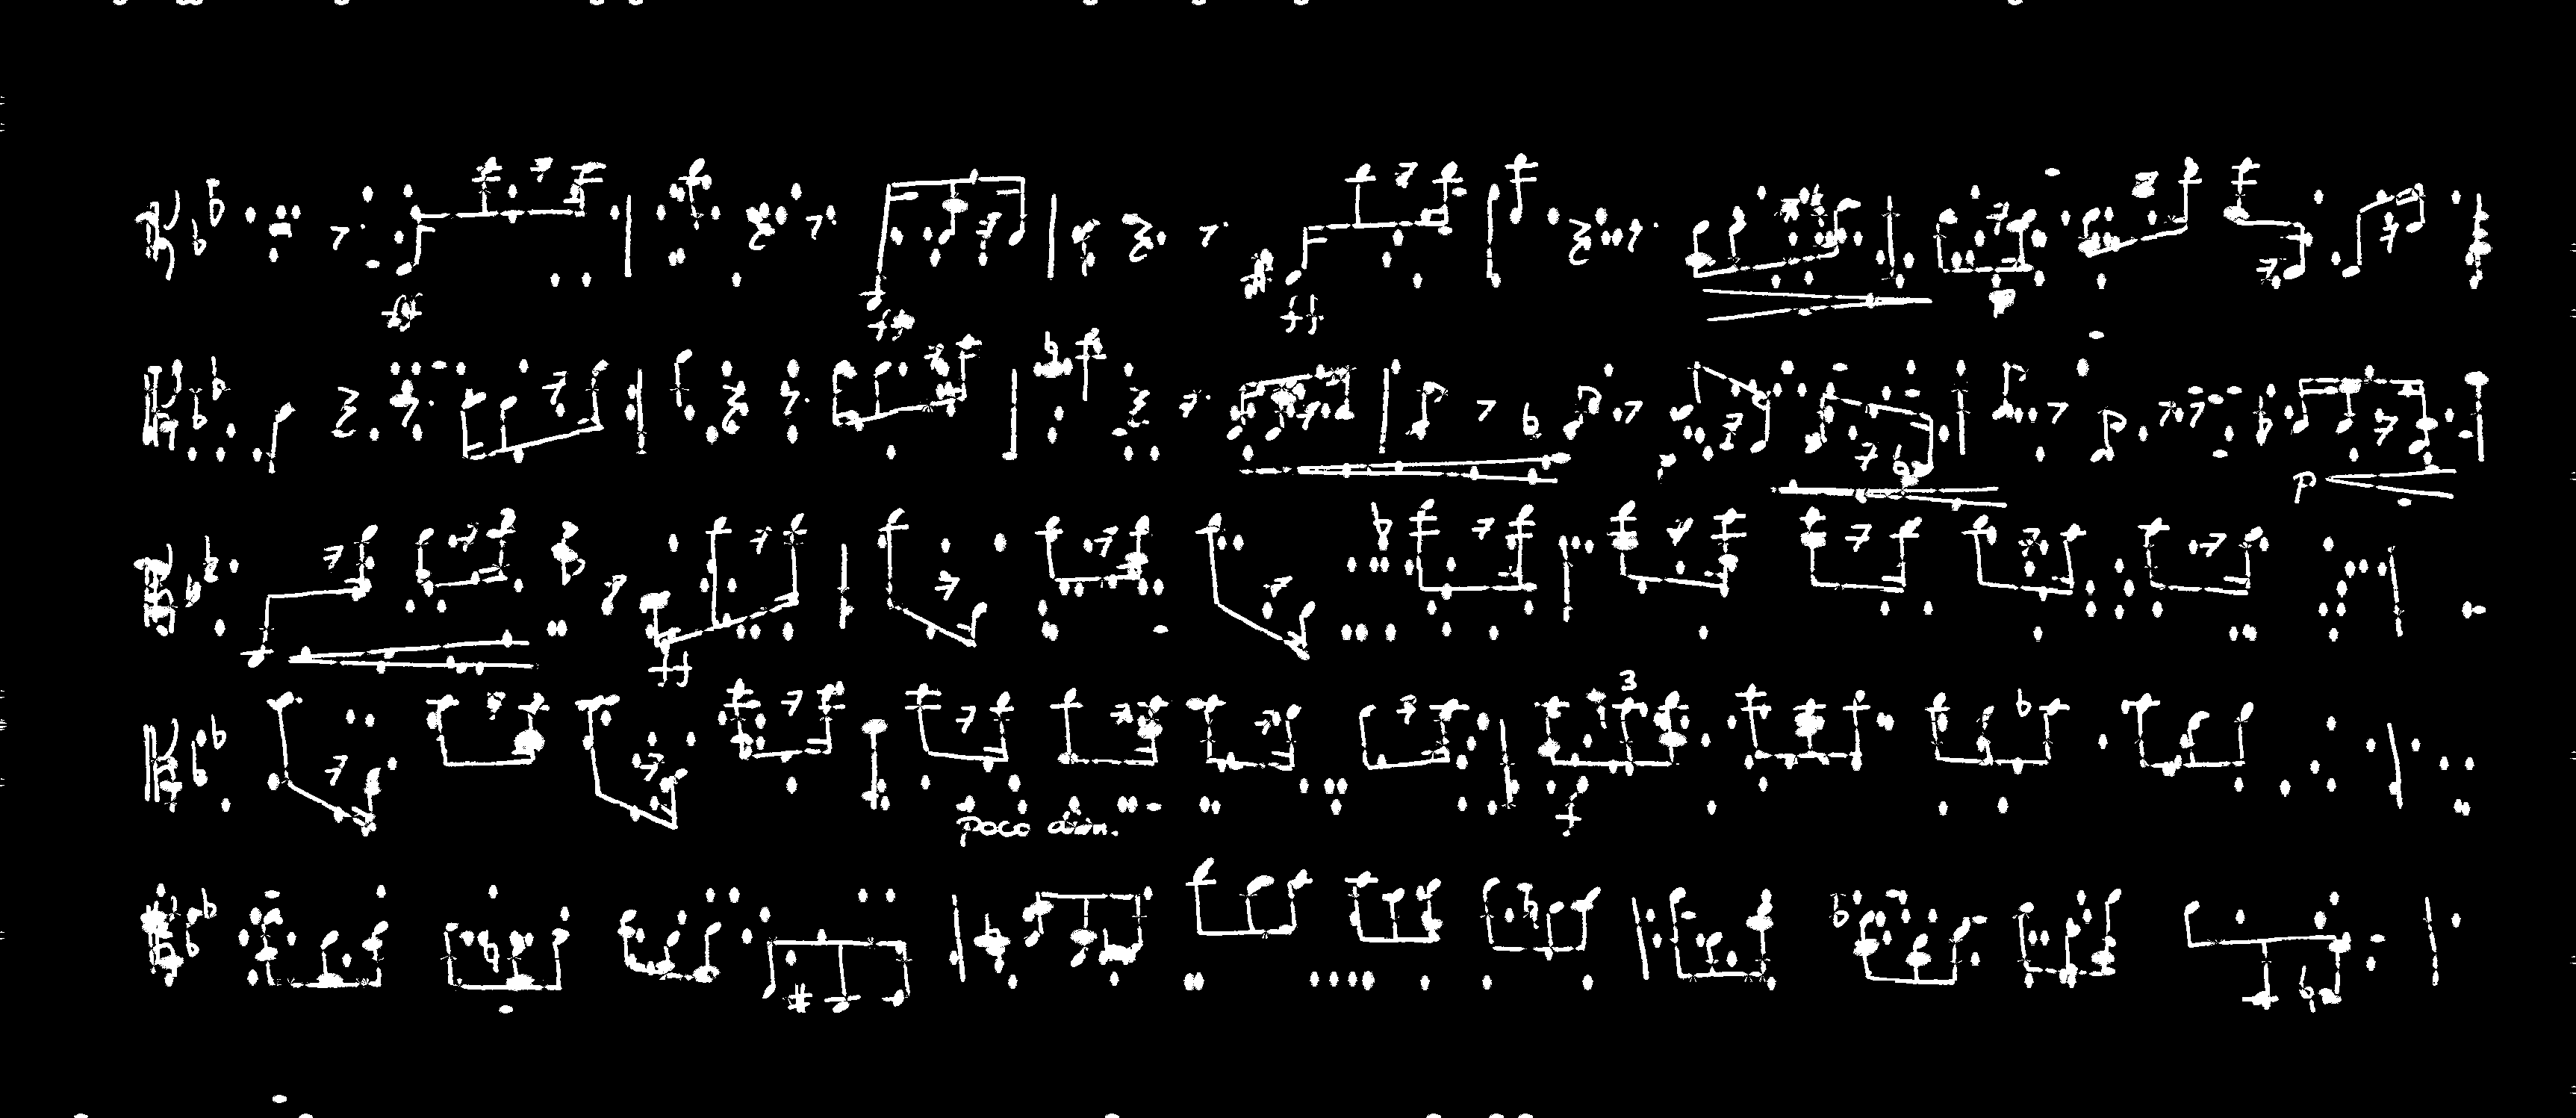 ff ff ff p
p
ff
3
poco dim. f